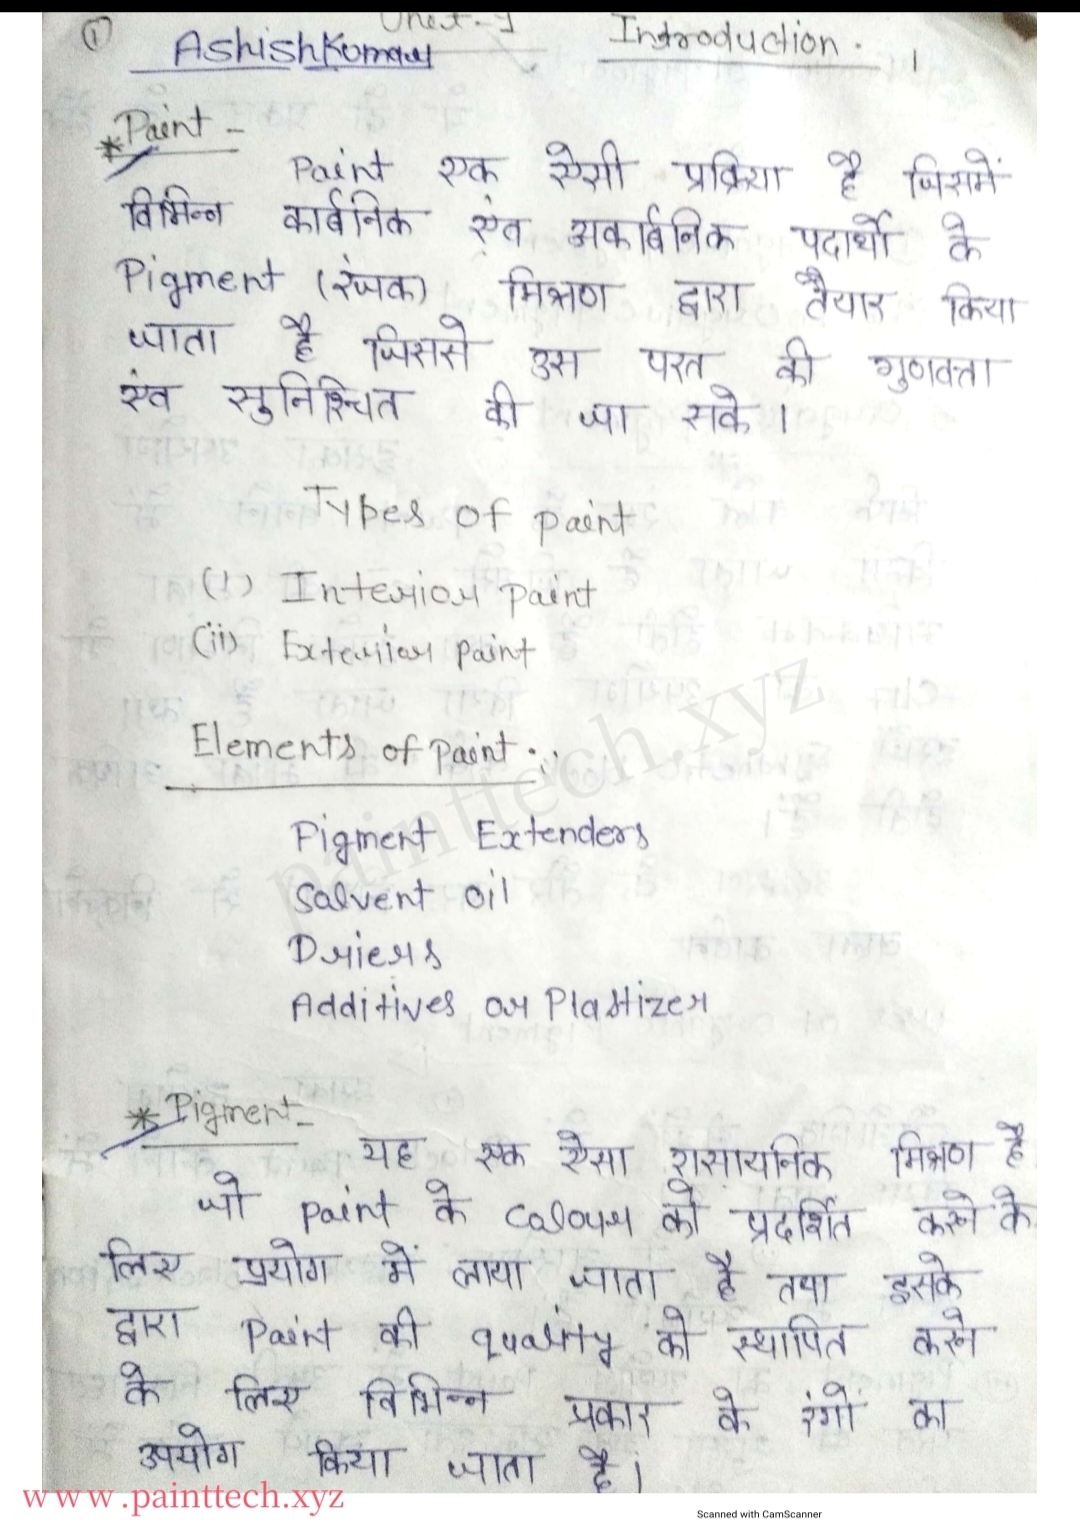 ① Unit-1 Introduction.
Ashish Kumar
* Paint -
Paint एक ऐसी प्रक्रिया है जिसमें
विभिन्न कार्बनिक एंव अकार्बनिक पदार्थो के
Pigment (रंजक) मिश्रण द्वारा तैयार किया
जाता है जिससे उस परत की गुणवत्ता
एंव सुनिश्चित की जा सके।
Types of paint
(i) Interior paint
(ii) Exterior paint
Elements of Paint :-
Pigment Extenders
Solvent oil
Driers
Additives or Plastizer
* Pigment -
यह एक ऐसा रासायनिक मिश्रण है
जो paint के colour को प्रदर्शित करने के
लिए प्रयोग में लाया जाता है तथा इसके
द्वारा Paint की quality को स्थापित करने
के लिए विभिन्न प्रकार के रंगों का
उपयोग किया जाता है।
painttech.xyz
www.painttech.xyz
Scanned with CamScanner